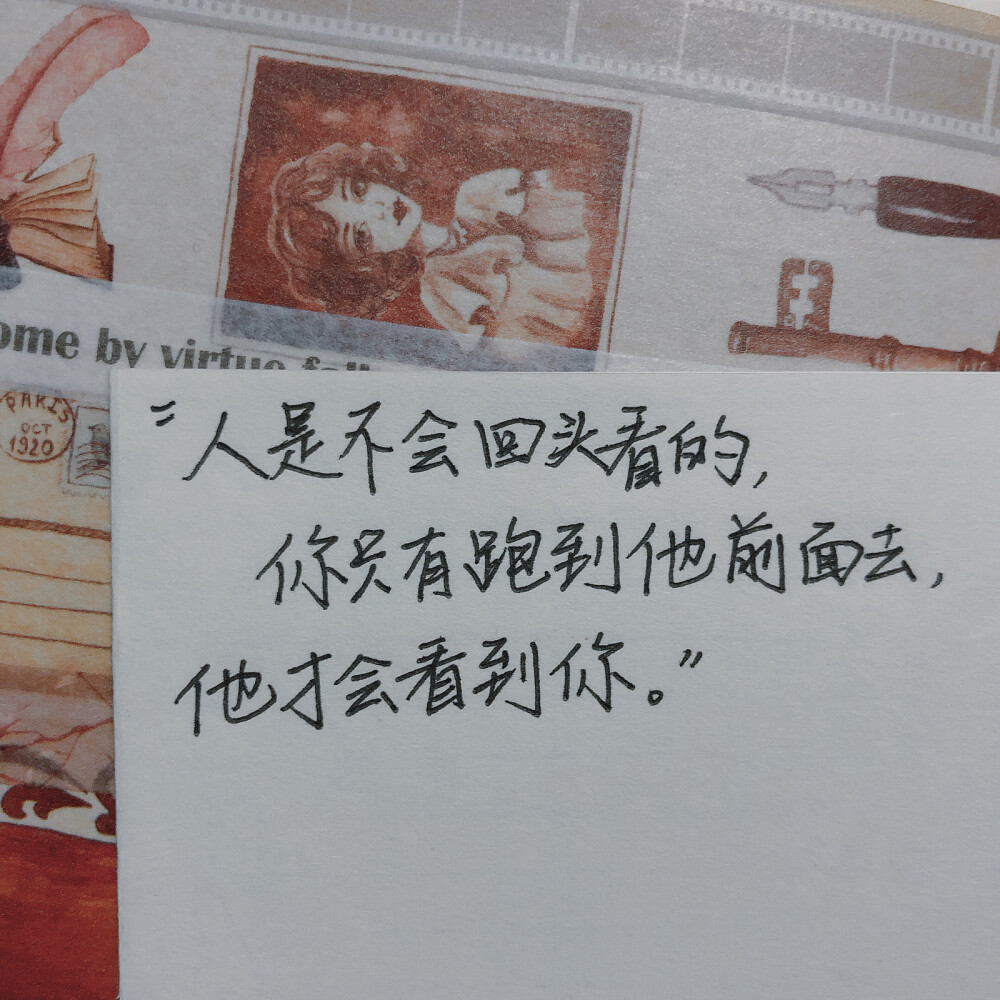 ome by virtue
PARIS
OCT
1920
"人是不会回头看的,
你只有跑到他前面去,
他才会看到你。"